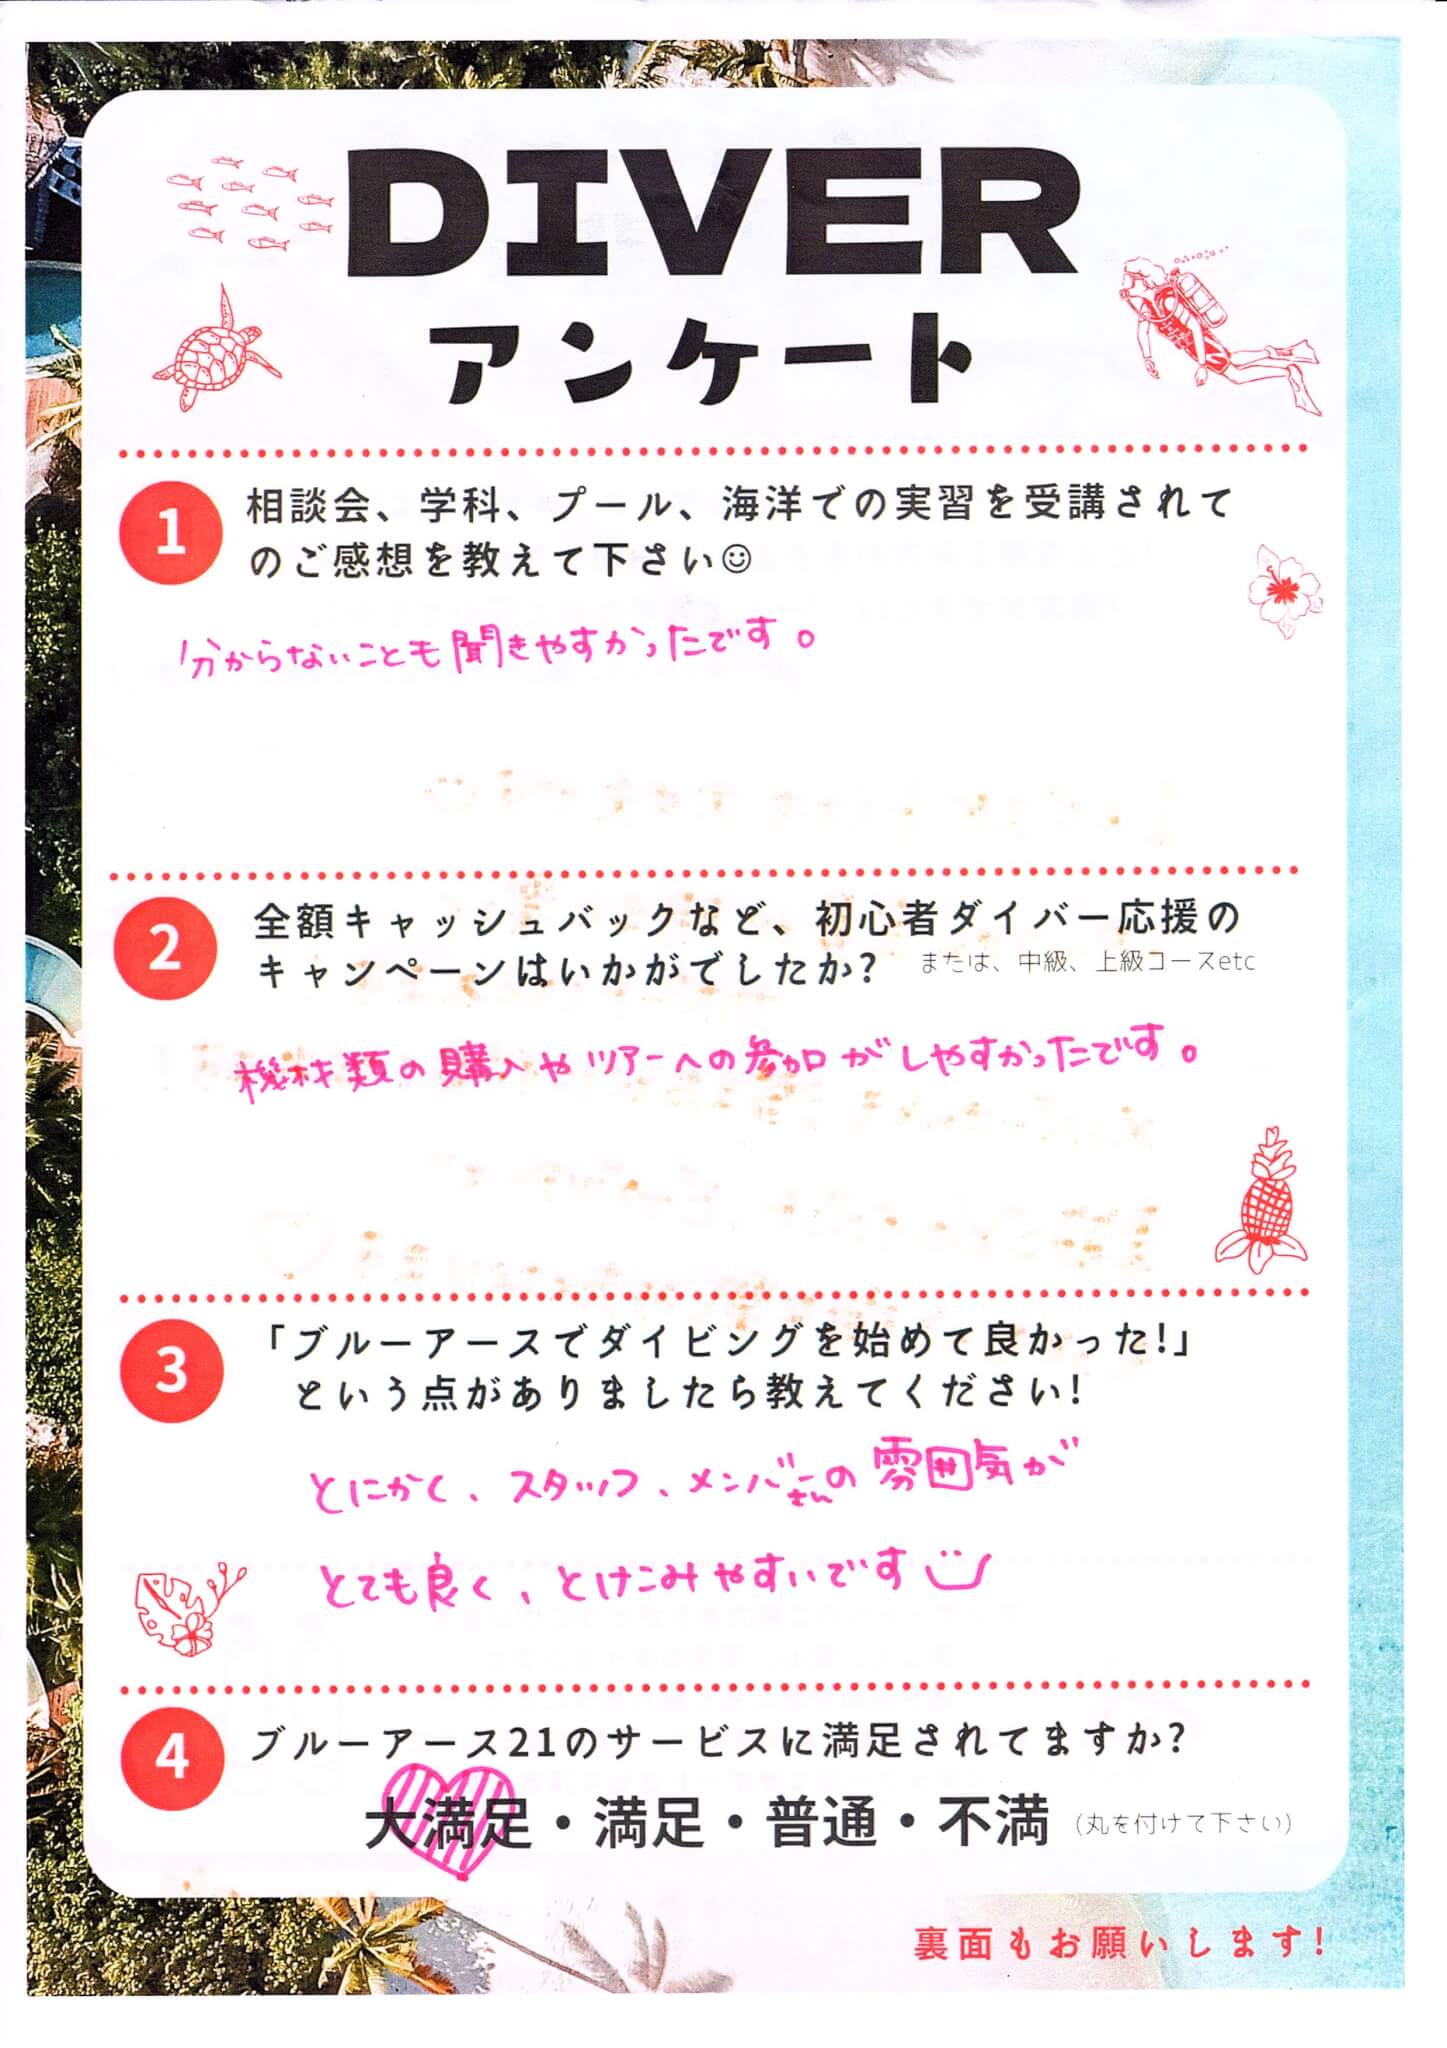 DIVER
アンケート
1
相談会、学科、プール、海洋での実習を受講されて
のご感想を教えて下さい☺
分からないことも聞きやすかったです。
2
全額キャッシュバックなど、初心者ダイバー応援の
キャンペーンはいかがでしたか? または、中級、上級コースetc
機材類の購入やツアーへの参加がしやすかったです。
3
「ブルーアースでダイビングを始めて良かった!」
という点がありましたら教えてください!
とにかく、スタッフ、メンバーさんの雰囲気が
とても良く、とけこみやすいです
4
ブルーアース21のサービスに満足されてますか?
大満足・満足・普通・不満 (丸を付けて下さい)
裏面もお願いします!